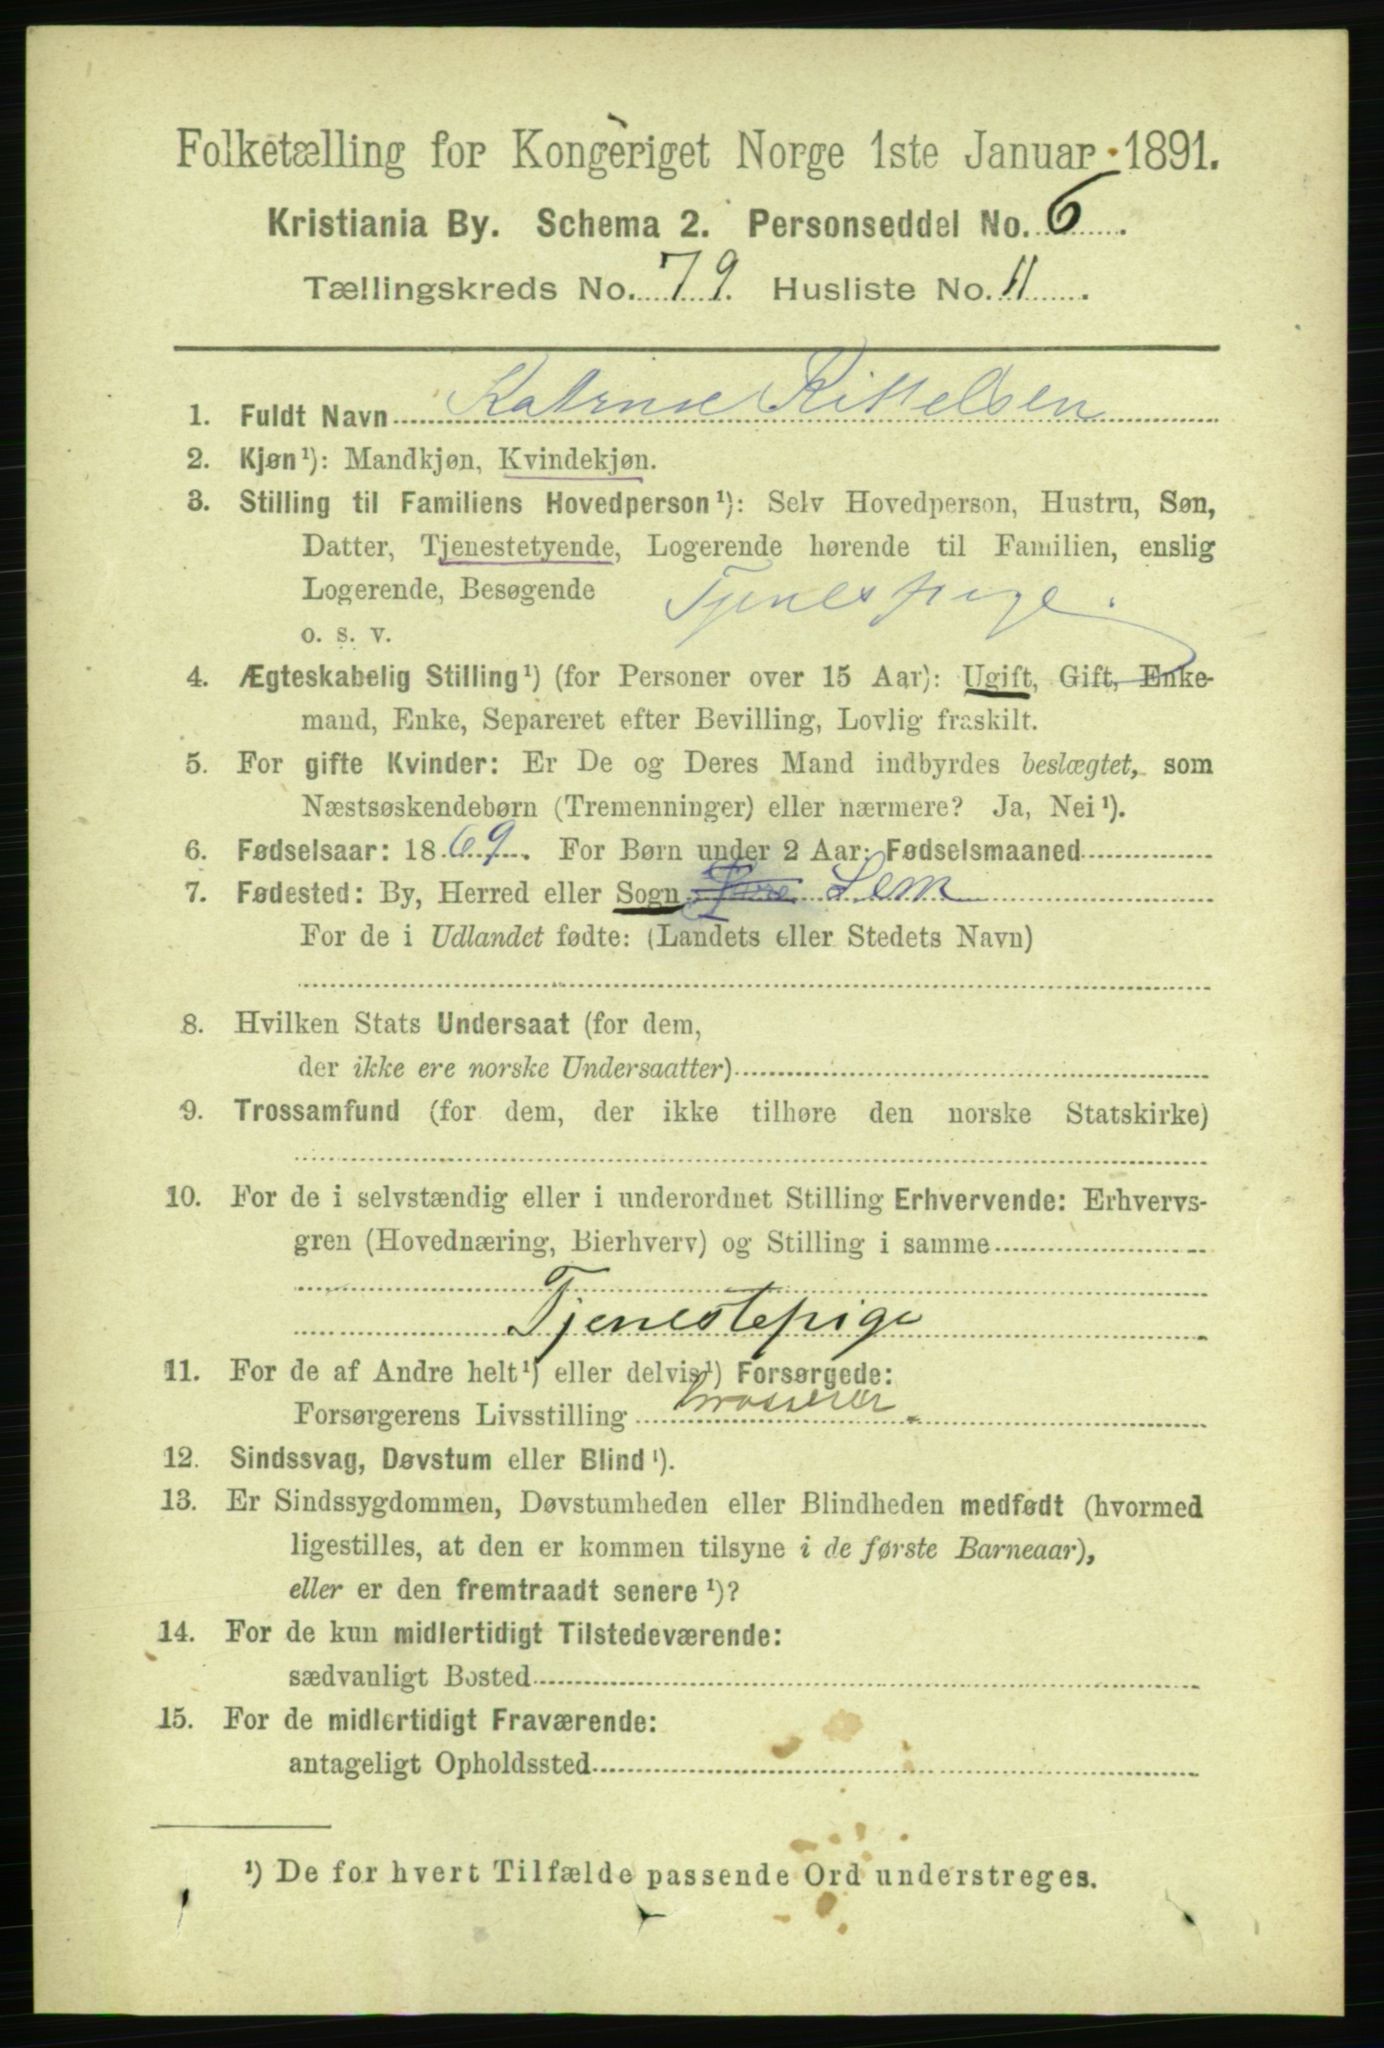 Folketælling for Kongeriget Norge 1ste Januar 1891.
Kristiania By. Schema 2. Personseddel No. 6.
Tællingskreds No. 79. Husliste No. 11.
1. Fuldt Navn Katrine Kittelsen
2. Kjøn¹): Mandkjøn, Kvindekjøn.
3. Stilling til Familiens Hovedperson¹): Selv Hovedperson, Hustru, Søn,
Datter, Tjenestetyende, Logerende hørende til Familien, enslig
Logerende, Besøgende Tjenestpige.
o. s. v.
4. Ægteskabelig Stilling¹) (for Personer over 15 Aar): Ugift, Gift, Enke-
mand, Enke, Separeret efter Bevilling, Lovlig fraskilt.
5. For gifte Kvinder: Er De og Deres Mand indbyrdes beslægtet, som
Næstsøskendebørn (Tremenninger) eller nærmere? Ja, Nei¹).
6. Fødselsaar: 1869. For Børn under 2 Aar: Fødselsmaaned
7. Fødested: By, Herred eller Sogn Lem
For de i Udlandet fødte: (Landets eller Stedets Navn)
8. Hvilken Stats Undersaat (for dem,
der ikke ere norske Undersaatter)
9. Trossamfund (for dem, der ikke tilhøre den norske Statskirke)
10. For de i selvstændig eller i underordnet Stilling Erhvervende: Erhvervs-
gren (Hovednæring, Bierhverv) og Stilling i samme
Tjenestepige
11. For de af Andre helt¹) eller delvis¹) Forsørgede:
Forsørgerens Livsstilling
12. Sindssvag, Døvstum eller Blind¹).
13. Er Sindssygdommen, Døvstumheden eller Blindheden medfødt (hvormed
ligestilles, at den er kommen tilsyne i de første Barneaar),
eller er den fremtraadt senere¹)?
14. For de kun midlertidigt Tilstedeværende:
sædvanligt Bosted
15. For de midlertidigt Fraværende:
antageligt Opholdssted
¹) De for hvert Tilfælde passende Ord understreges.